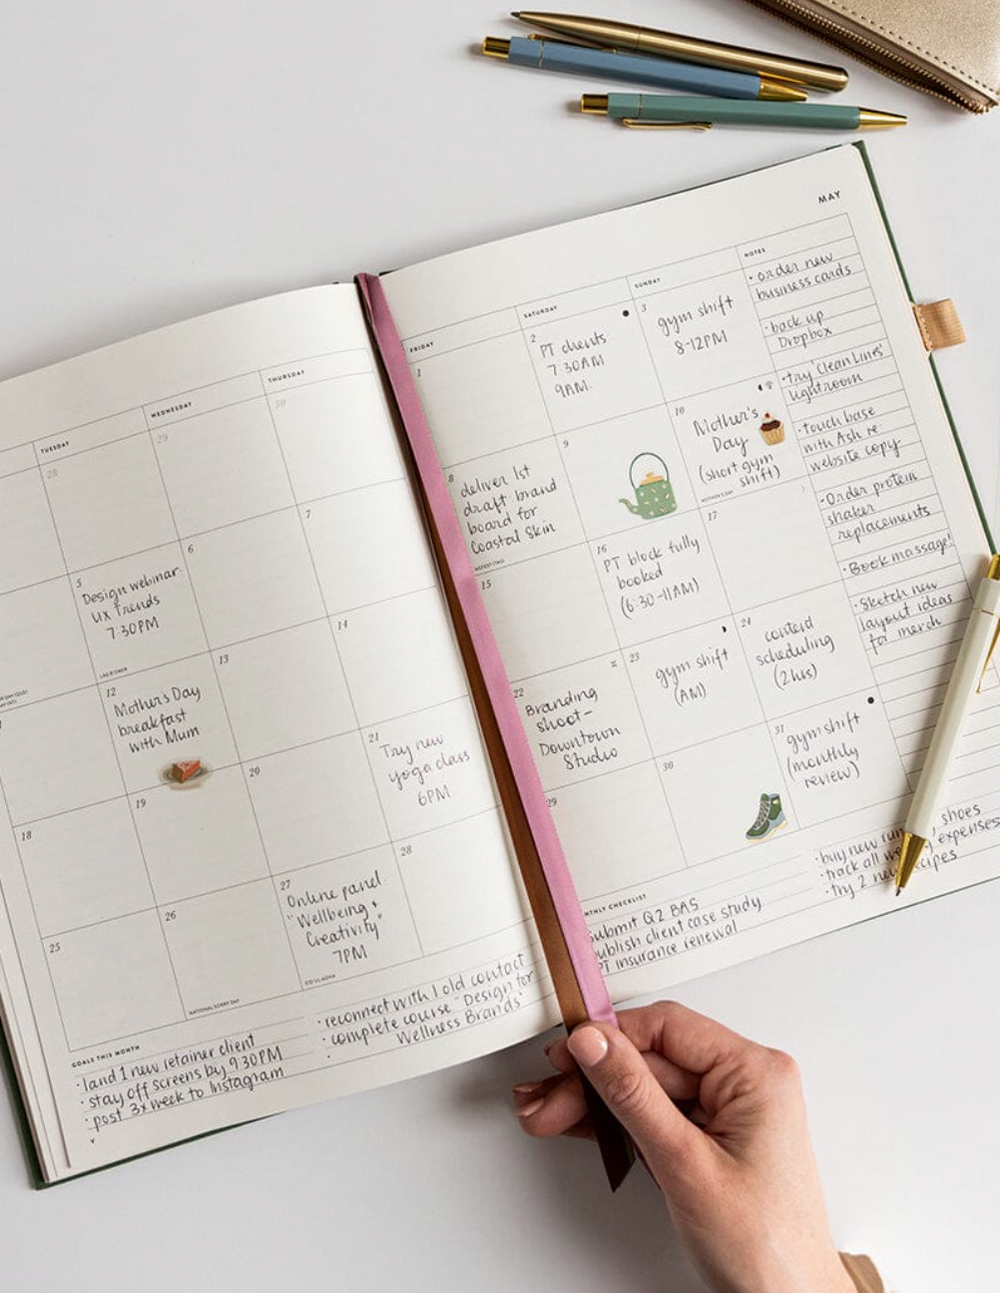 MAY
TUESDAY
WEDNESDAY
THURSDAY
28
29
30
5
Design webinar
UX Trends
7:30PM
6
7
12
Mother's Day
breakfast
with Mum
13
14
18
19
20
21
Try new
yoga class
6PM
25
26
NATIONAL SORRY DAY
27
Online panel
"Wellbeing +
Creativity"
7PM
EID UL-ADHA
28
GOALS THIS MONTH
· land 1 new retainer client
· stay off screens by 9:30PM
· post 3x week to Instagram
· reconnect with 1 old contact
· complete course "Design for
Wellness Brands"
FRIDAY
SATURDAY
SUNDAY
NOTES
1
2
PT clients
7:30AM
9AM.
3
gym shift
8-12PM
8
deliver 1st
draft brand
board for
Coastal Skin
9
10
Mother's
Day
(short gym
shift)
MOTHER'S DAY
15
16
PT block fully
booked
(6:30-11AM)
17
22
Branding
shoot-
Downtown
Studio
23
gym shift
(AM)
24
content
scheduling
(2hrs)
29
30
31
gym shift
(monthly
review)
· order new
business cards
· back up
Dropbox
· try 'Clean Lines'
lightroom
· touch base
with Ash re:
website copy
· Order protein
shaker
replacements
· Book massage!
· Sketch new
layout ideas
for merch
NTHLY CHECKLIST
Submit Q2 BAS
publish client case study
PT insurance renewal
· buy new run shoes
· track all expenses
· try 2 new recipes